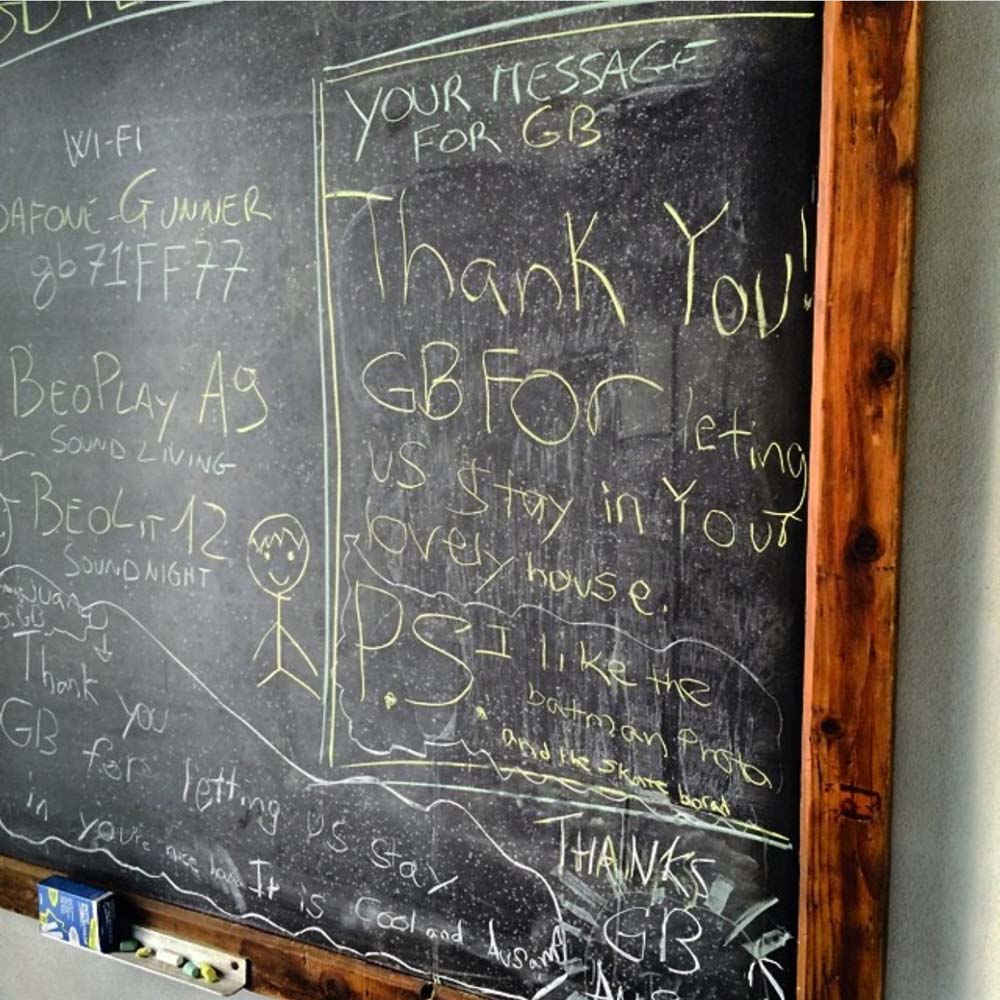 WI-FI
DAFONE-GUNNER
gb71FF77
BEOPLAY A9
SOUND LIVING
BEOLIT 12
SOUND NIGHT
Thank
you
GB for letting us stay
in your nice It is Cool and Ausam
YOUR MESSAGE
FOR GB
Thank You!
GB FOr leting
us stay in Your
lovely house.
P.S. I like the
batman Proto
and the skate borad
THANKS
GB